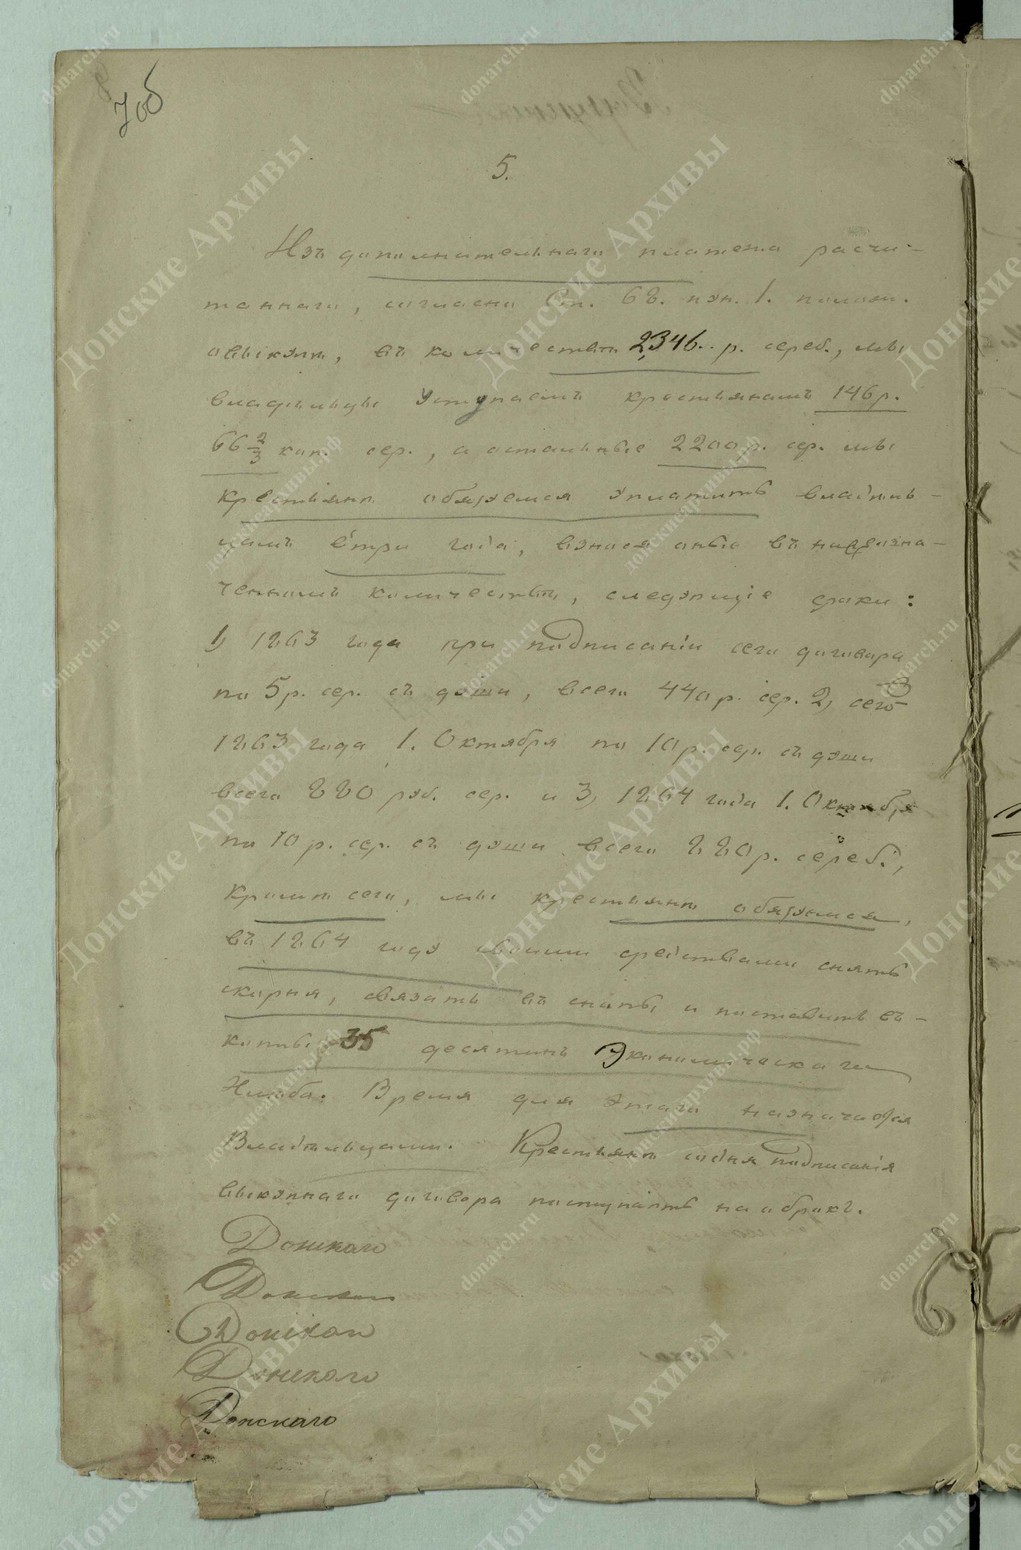 7об
5.
Изъ дополнительнаго платежа расчи-
таннаго, согласно Ст. 68. пун. 1. полож.
овыкупѣ, въ количествѣ 2,346 р. сереб., мы
владѣльцы уступаемъ крестьянамъ 146 р.
66 2/3 коп. сер., а остальные 2200 р. сер. мы
крестьяне обязуемся уплатить владѣль-
цамъ втри года, взнося оные въ нижеозна-
ченномъ количествѣ, слѣдующіе сроки:
1, 1863 года при подписаніи сего договора
по 5 р. сер. съ души, всего 440 р. сер. 2, сего
1863 года 1. Октября по 10 р. сер. съ души
всего 880 руб. сер. и 3, 1864 года 1. Октября
по 10 р. сер. съ души всего 880 р. сереб.,
Кромѣ сего, мы крестьяне обязуемся,
въ 1864 году своими средствами снять
скорня, связать въ снопы и поставить въ-
копны 35 десятинъ Экономическаго
Хлѣба. Время для этаго назначается
Владѣльцами. Крестьяне содня подписанія
выкупнаго договора поступаютъ на оброкъ.
Донскаго
Донскаго
Донскаго
Донскаго
Донскаго